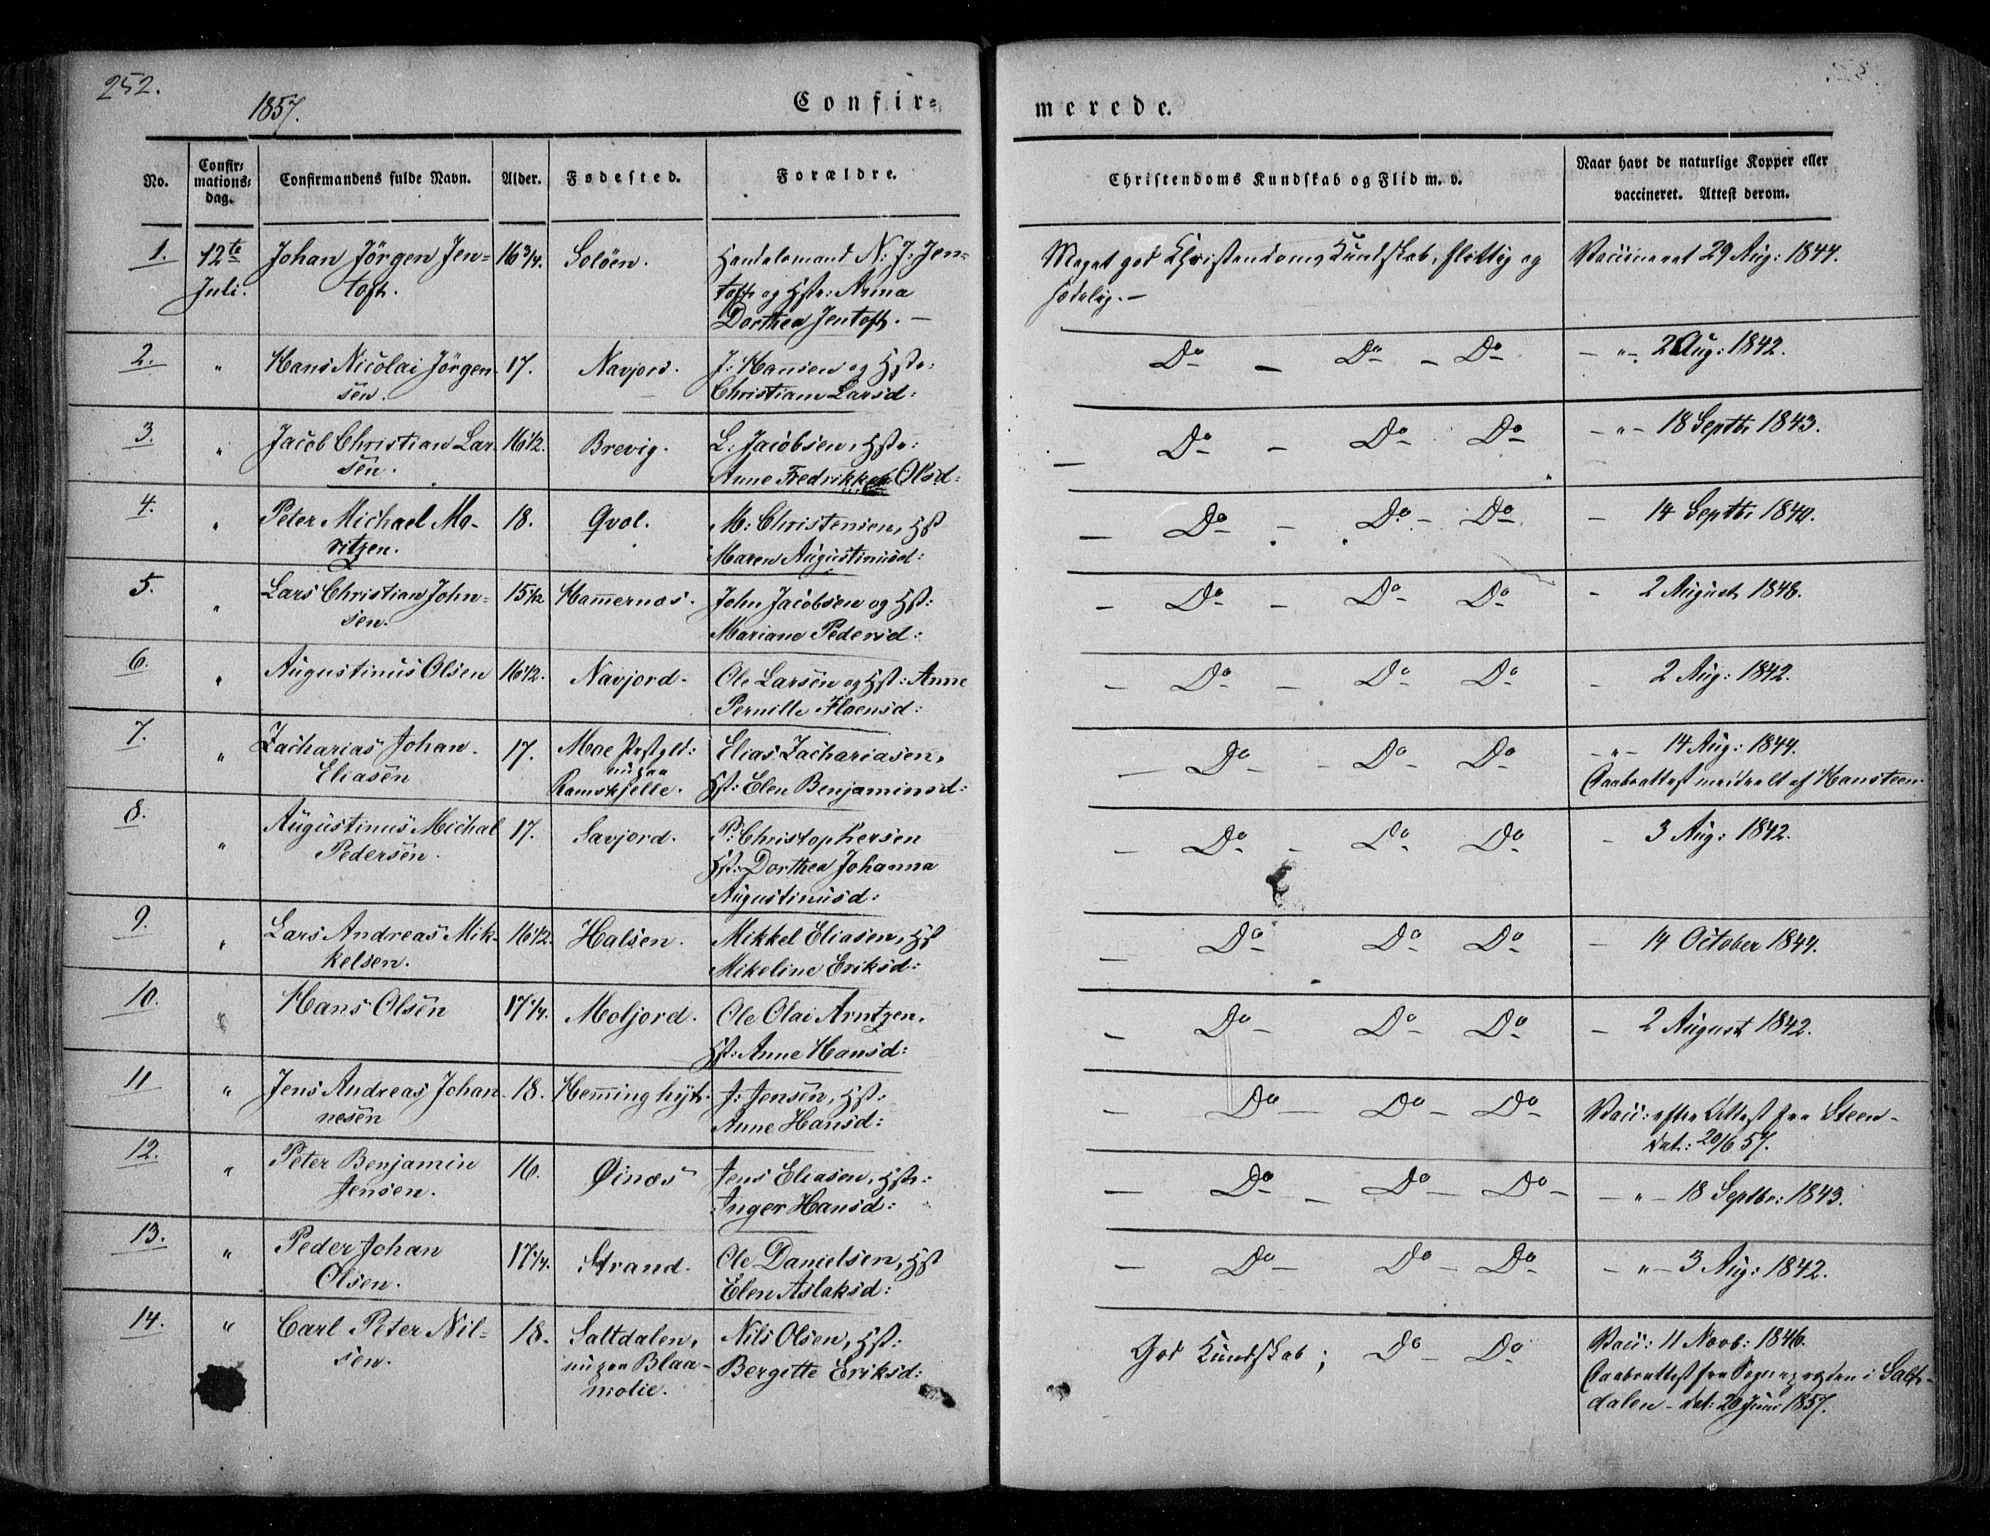 252.
1857.
Confir=
merede.
No.
Confir=
mations=
dag.
Confirmandens fulde Navn.
Alder.
Fødested.
Forældre.
Christendoms Kundskab og Flid m. v.
Naar havt de naturlige Kopper eller
vaccineret. Attest derom.
1. 12te Johan Jörgen Jen= 16 3/4. Solöen. Handelsmand N: J: Jen= Meget god Christendoms Kundskab, flittig og Vaccineret 29 Aug: 1844.
Juli. toft. toft og Hstr: Anna sædelig. —
Dorthea Jentoft. —
2. " Hans Nicolai Jörgen 17. Navjord. J: Hansen og Hstr: Do — Do — Do — " — 2 Aug: 1842.
sen. Christiane Larsd:
3. " Jacob Christian Lar= 16 1/2. Brevig. L: Jacobsen, Hstr: — Do — Do Do — " — 18 Septbr 1843.
sen. Anne Fredrikke Olsd:
4. " Peter Michael Mo= 18. Qvol. M: Christensen, Hst Do — Do — Do — 14 Septbr 1840.
ritzen. Maren Augustinusd:
5. " Lars Christian John= 15 1/2 Hamernæs. John Jacobsen og Hst: — Do — Do Do — 2 August 1848.
sen. Mariane Pedersd:
6. " Augustinus Olsen 16 1/2. Navjord. Ole Larsen og Hst: Anne — Do — Do Do — 2 Aug: 1842.
Pernille Floensd:
7. " Zacharias Johan 17. Moe Prstgld: Elias Zachariasen, — Do — Do Do — " — 14 Aug: 1844.
Eliasen nu paa Hst: Elen Benjaminsd: Daabsattest meddelt af Hansteen.
Ramskjelle.
8. " Augustinus Michal 17. Savjord. P: Christophersen — Do — Do Do — 3 Aug: 1842.
Pedersen. Hst: Dorthea Johanna
Augustinusd:
9. " Lars Andreas Mik= 16 1/2. Halsen. Mikkel Eliasen, Hst — Do Do Do — 14 October 1844.
kelsen. Mikeline Eriksd:
10. " Hans Olsen 17 1/4. Moljord. Ole Olai Arntzen, — Do — Do Do — 2 August 1842.
Hst: Anne Hansd:
11 " Jens Andreas Johan= 18. Hemminghyt. J: Jensen, Hst: — Do — Do — Do — Vacc: efter Attest fra Steen —
nesen Anne Hansd: dat: 20/6 57.
12. " Peter Benjamin 16. Øinæs Jens Eliasen, Hstr: — Do — Do — Do — — " — 18 Septbr: 1843.
Jensen. Inger Hansd:
13. " Peder Johan 17 1/4. Strand. Ole Danielsen, Hst — Do — Do — Do — " — 3 Aug: 1842.
Olsen. Elen Aslaksd:
14. " Carl Peter Nil= 18. Saltdalen, Nils Olsen, Hst: God Kundskab; Do — Do Vacc: 11 Novb: 1846.
sen. nu paa Blaa= Bergitte Eriksd: Daabsattest fra Sognepræsten i Salt=
molie. dalen — dat: 20 Juni 1857.